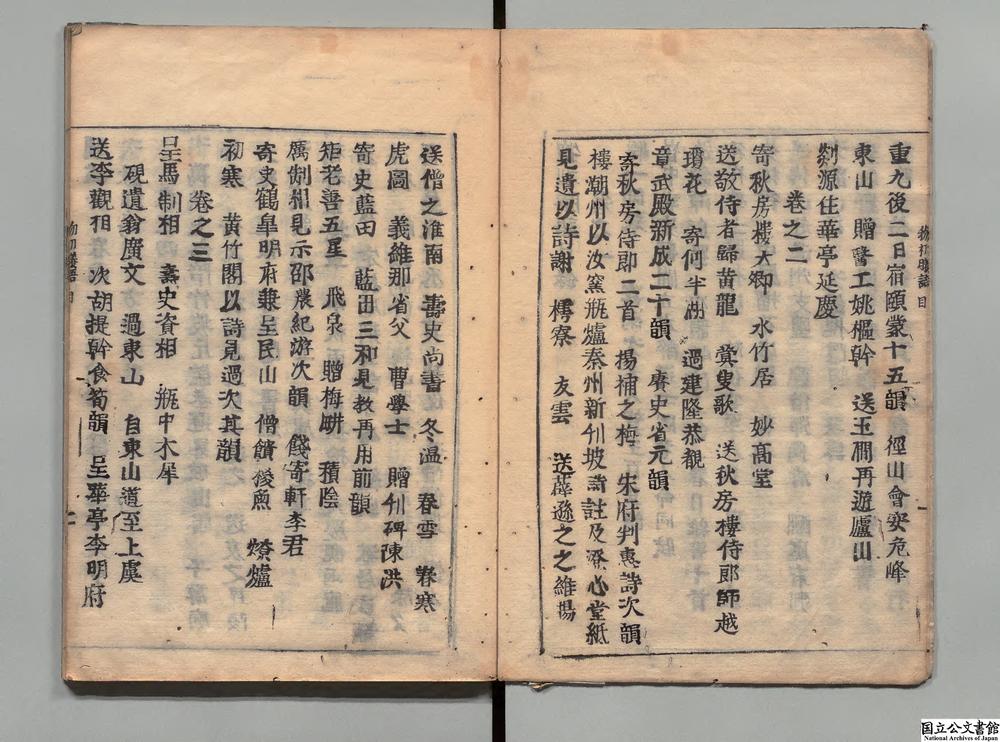 重九後二日宿頤蒙十五韻　徑山會安危峰
東山　贈醫工姚樞幹　送玉磵再遊廬山
剡源住華亭延慶
卷之二
寄秋房樓大卿　水竹居　妙高堂
送敬侍者歸黃龍　糞叟歌　送秋房樓侍郎師越
瓊花　寄何半湖　過建隆恭覩
章武殿新成二十韻　賡史省元韻
寄秋房侍郎二首　楊補之梅　朱府判惠詩次韻
樓潮州以汝窯瓶爐秦州新刊坡詩註及澄心堂紙
見遺以詩謝　樗寮　友雲　送薛遜之之維揚
送僧之淮南　壽史尚書　冬溫　春雪　春寒
虎圖　義維那省父　曹學士　贈刊碑陳洪
寄史藍田　藍田三和見教再用前韻
矩老善五星　飛泉　贈梅畊　積陰
厲劊相見示邵農紀游次韻　餞寄軒李君
寄史鶴皐明府兼呈民山　僧饋梭魚　燎爐
初寒　黃竹閣以詩見過次其韻
卷之三
呈馬制相　壽史資相　瓶中木犀
硯遺翁廣文　過東山　自東山道至上虞
送李觀相　次胡提幹食筍韻　呈華亭李明府
国立公文書館
National Archives of Japan